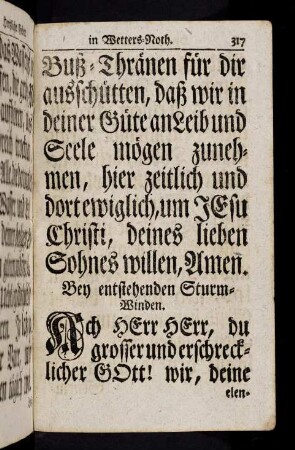 in Wetters-Noth. 317
Buß-Thränen für dir
ausschütten, daß wir in
deiner Güte an Leib und
Seele mögen zuneh-
men, hier zeitlich und
dort ewiglich, um JEsu
Christi, deines lieben
Sohnes willen, Amen.
Bey entstehenden Sturm-
Winden.
Ach HErr HErr, du
grosser und erschreck-
licher GOtt! wir, deine
elen-